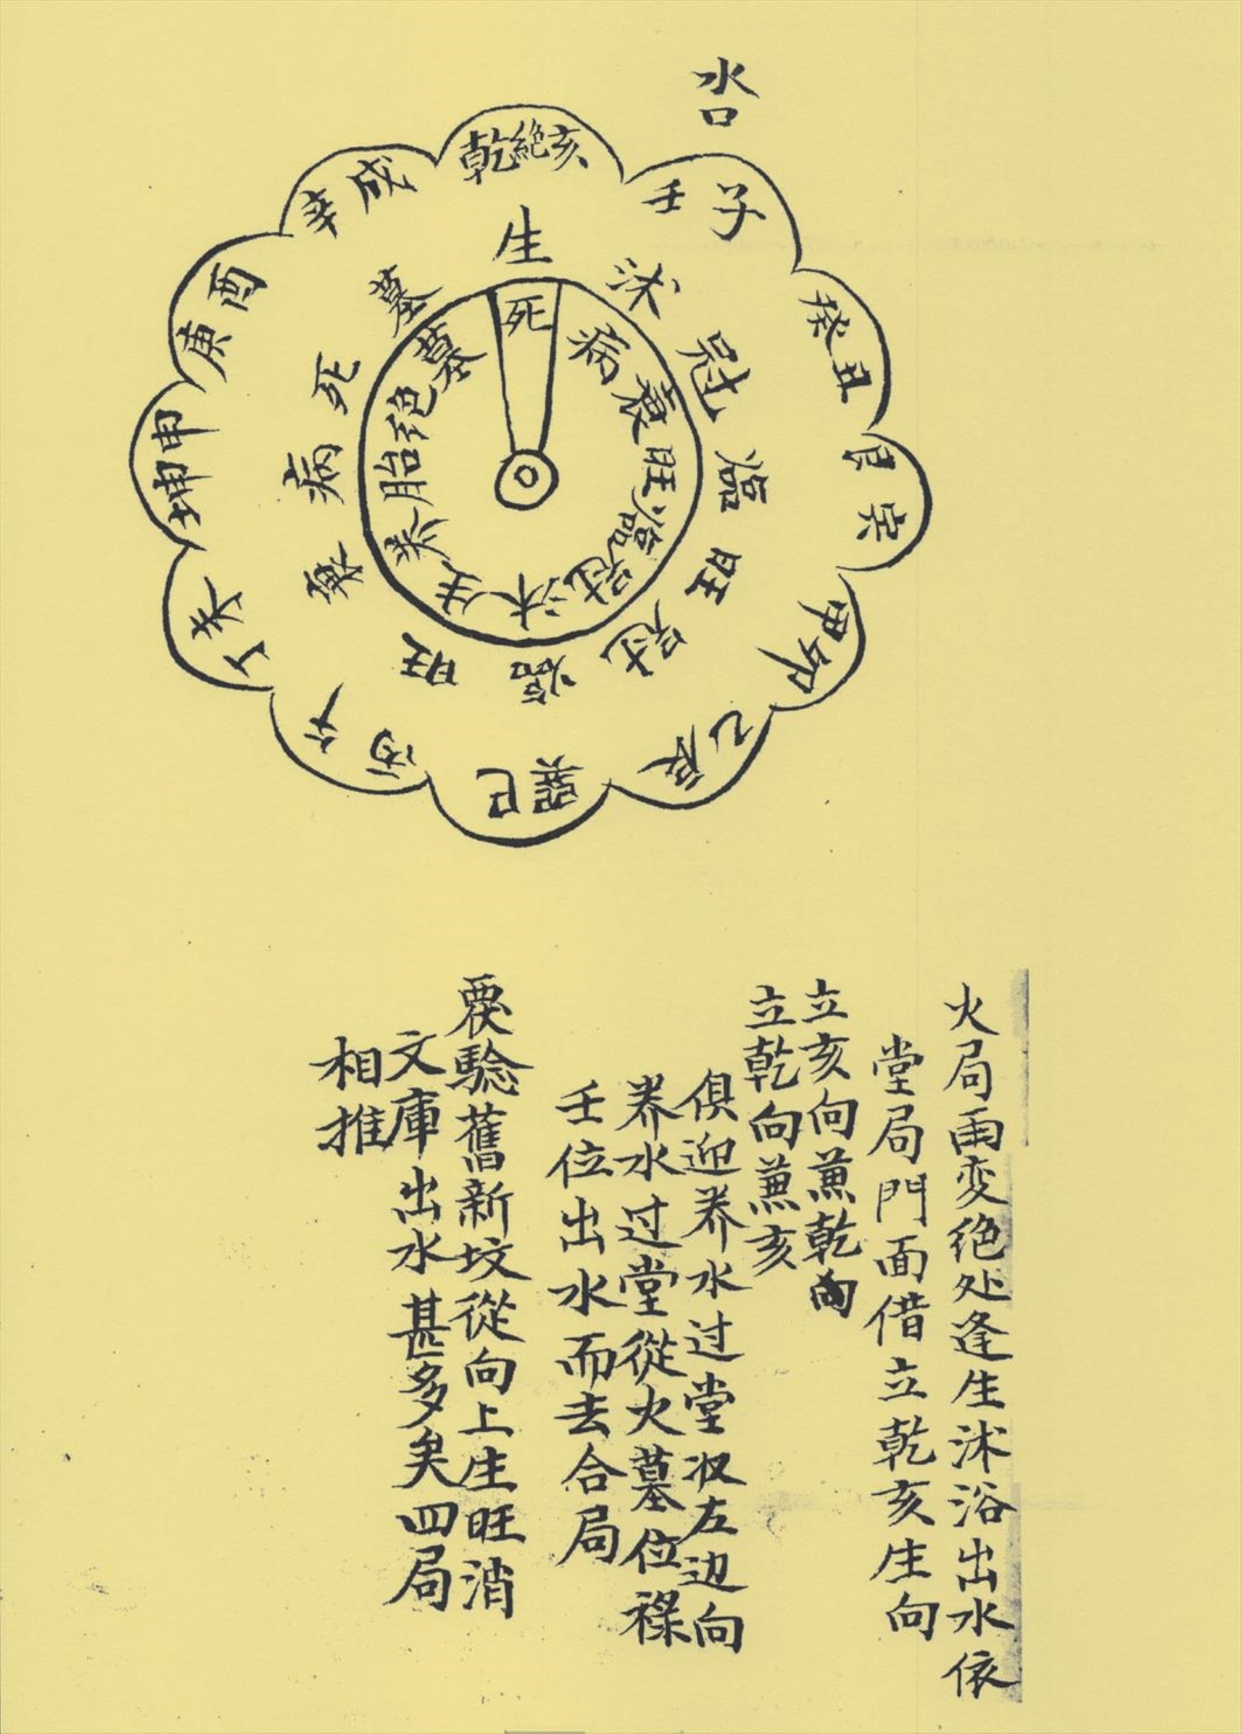 水口
乾絕亥
壬子
癸丑
艮寅
甲卯
乙辰
巽巳
丙午
丁未
坤申
庚酉
辛戌
生
沭
冠
臨
旺
冠
臨
旺
衰
病
死
墓
死
病
衰
旺
臨
冠
沭
生
养
胎
绝
墓
火局雨变绝处逢生沭浴出水依
堂局門面借立乾亥生向
立亥向兼乾向
立乾向兼亥
俱迎养水过堂收左边向
养水过堂從火墓位祿
壬位出水而去合局
覆驗舊新坟從向上生旺消
文庫出水甚多矣四局
相推